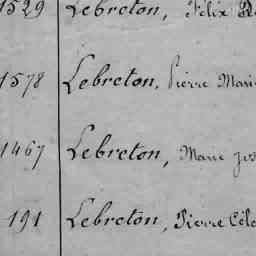 1529 Lebreton, Félix
1578 Lebreton, Pierre Marie
1467 Lebreton, Marie
191 Lebreton, Pierre